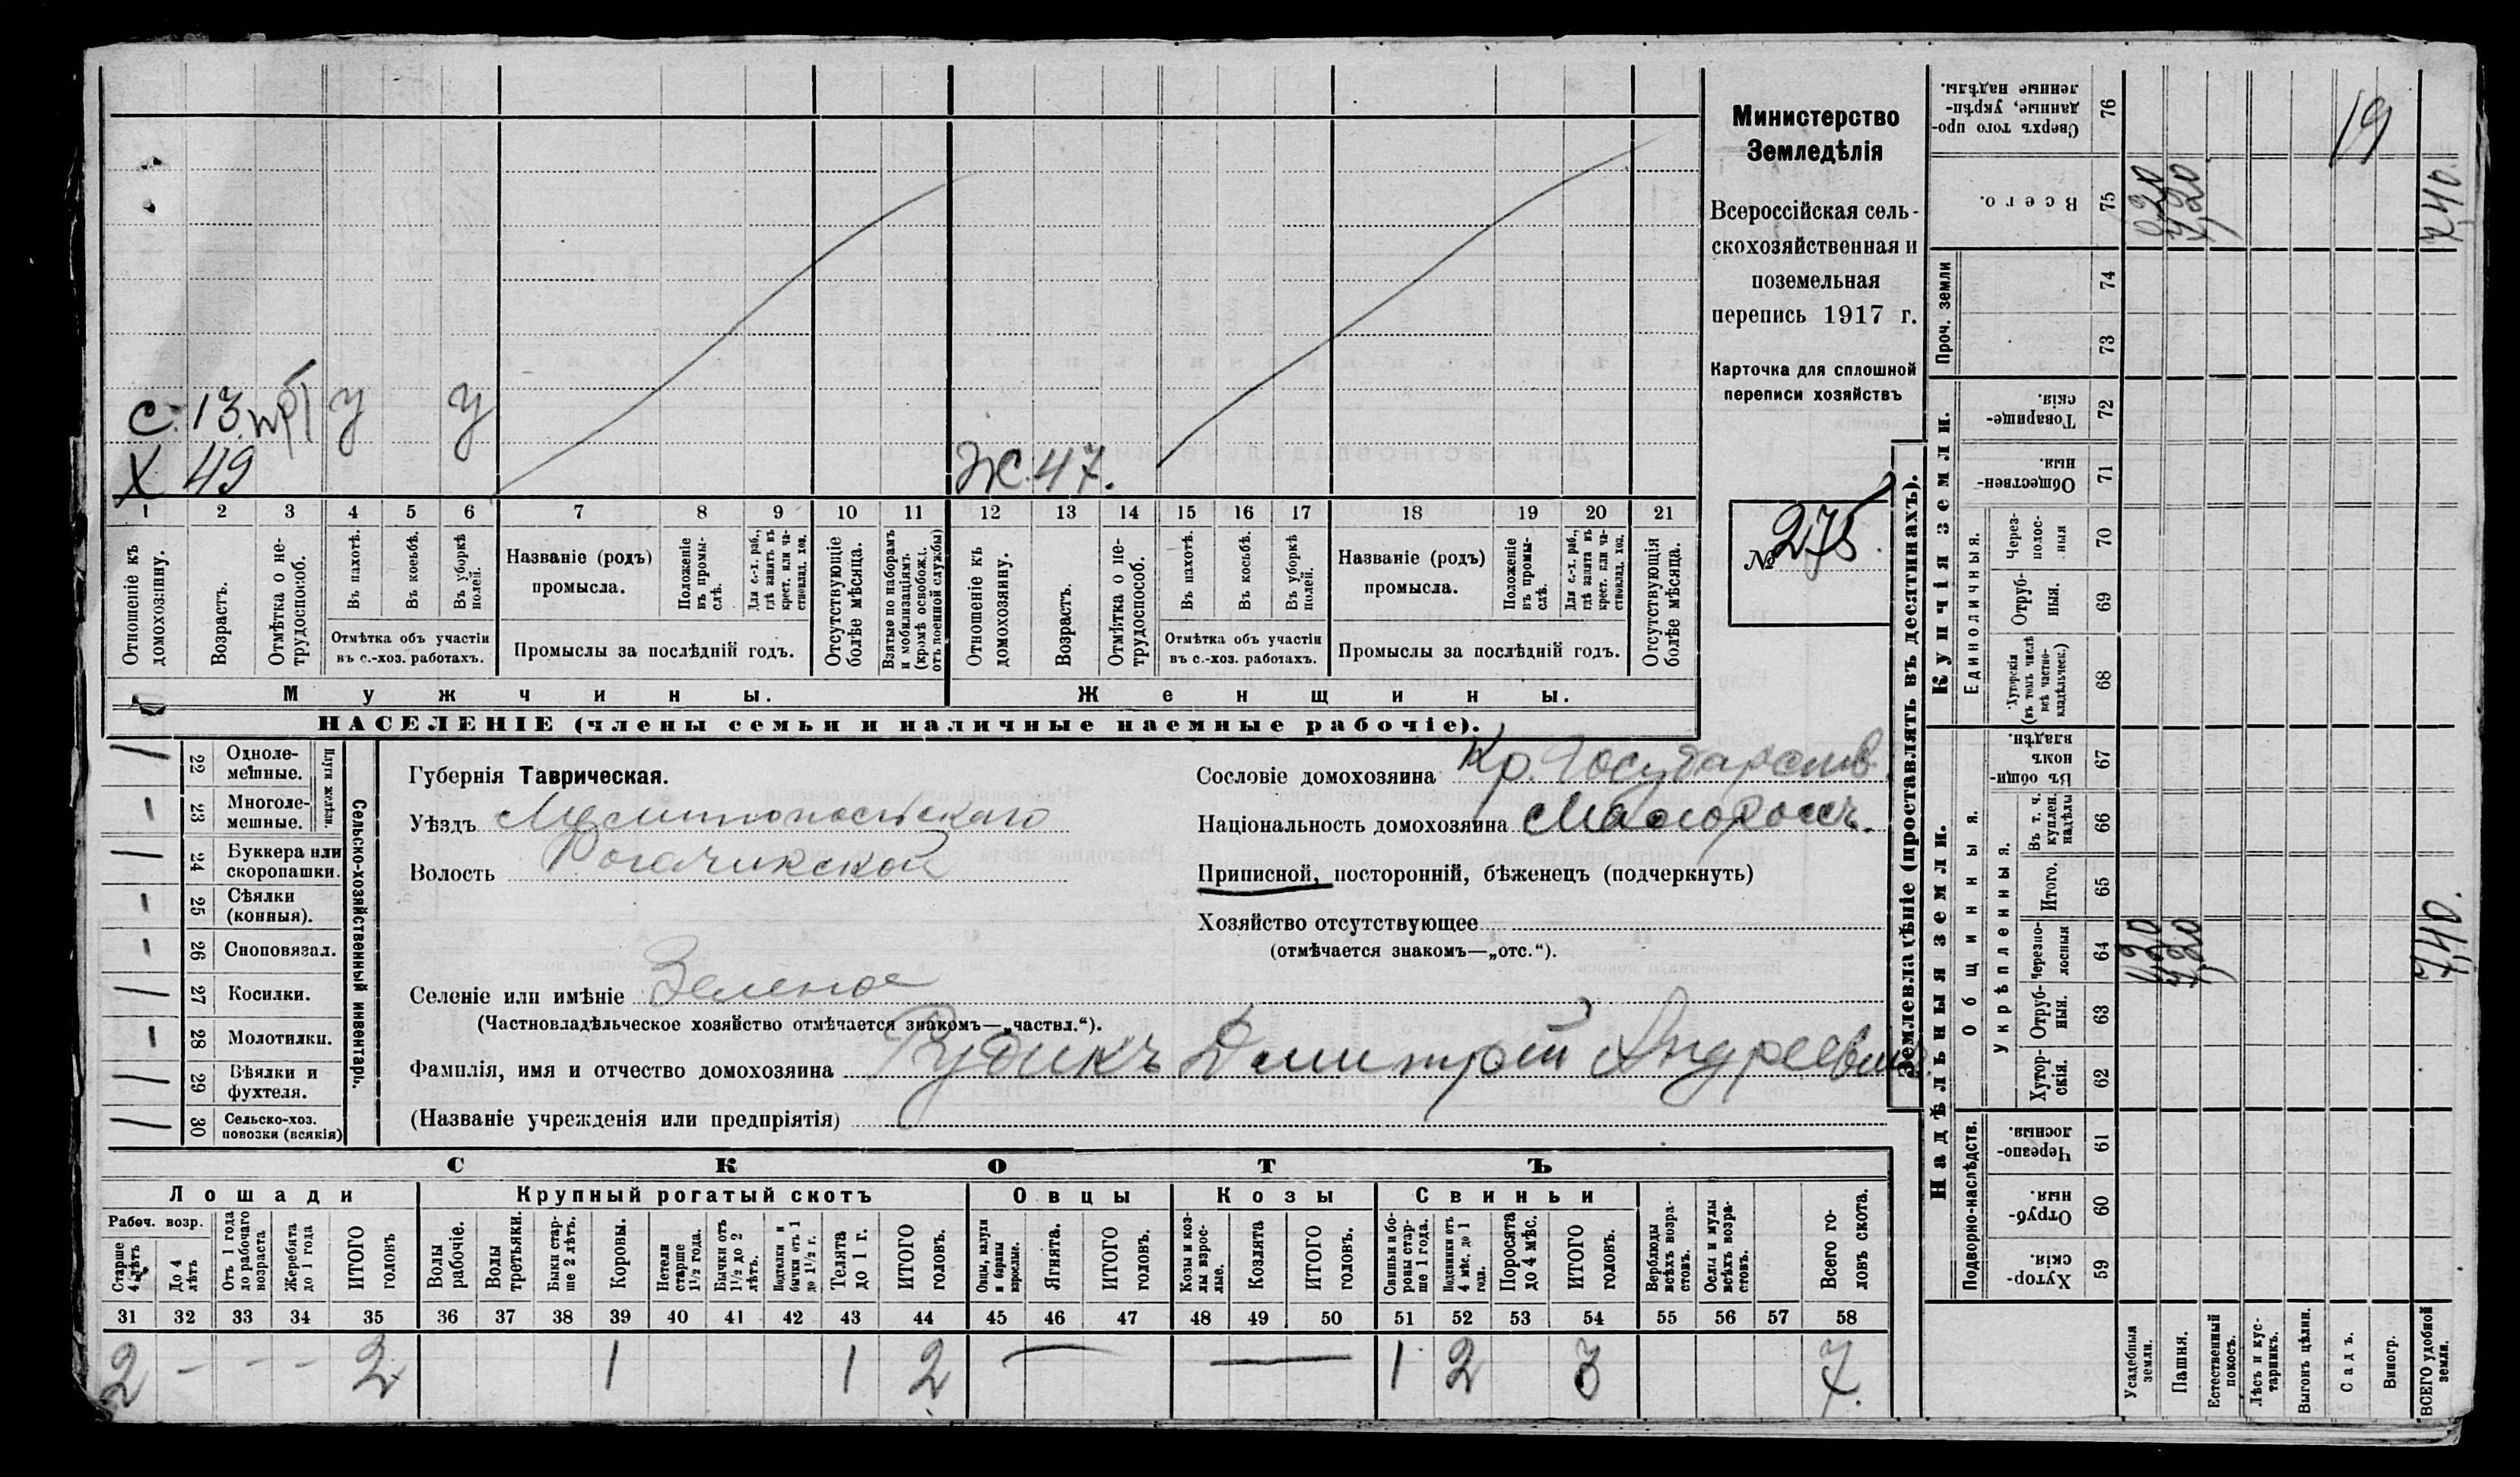 Министерство
Земледѣлія
Всероссійская сель-
скохозяйственная и
поземельная
перепись 1917 г.
Карточка для сплошной
переписи хозяйствъ
№ 275.
19
С. 13. у у
Х 49
Ж. 47.
1 2 3 4 5 6 7 8 9 10 11 12 13 14 15 16 17 18 19 20 21
Отношеніе къ домохозяину.
Возрастъ.
Отмѣтка о не-трудоспособ.
Въ пахотѣ.
Въ косьбѣ.
Въ уборкѣ полей.
Отмѣтка объ участіи
въ с.-хоз. работахъ.
Названіе (родъ)
промысла.
Положеніе въ промы-слѣ.
Для с.-х. раб., гдѣ занятъ въ крест. или ча-стновлад. хоз.
Промыслы за послѣдній годъ.
Отсутствующіе болѣе мѣсяца.
Взятые по наборамъ и мобилизаціямъ (кромѣ освобожд. отъ военной службы)
Отношеніе къ домохозяину.
Возрастъ.
Отмѣтка о не-трудоспособ.
Въ пахотѣ.
Въ косьбѣ.
Въ уборкѣ полей.
Отмѣтка объ участіи
въ с.-хоз. работахъ.
Названіе (родъ)
промысла.
Положеніе въ промы-слѣ.
Для с.-х. раб., гдѣ занятъ въ крест. или ча-стновлад. хоз.
Промыслы за послѣдній годъ.
Отсутствующія болѣе мѣсяца.
Мужчины.
Женщины.
НАСЕЛЕНІЕ (члены семьи и наличные наемные рабочіе).
22 Одноле-мешные.
23 Многоле-мешные.
Плуги желѣзн.
24 Буккера или скоропашки.
25 Сѣялки (конныя).
26 Сноповязал.
27 Косилки.
28 Молотилки.
29 Вѣялки и фухтеля.
30 Сельско-хоз. повозки (всякія)
Сельско-хозяйственный инвентарь.
Губернія Таврическая.
Уѣздъ Мелитопольскаго
Волость Рогачикской
Селеніе или имѣніе Зеленое
(Частновладѣльческое хозяйство отмѣчается знакомъ—„частвл.“).
Фамилія, имя и отчество домохозяина Рудикъ Дмитрій Андреевичъ
(Названіе учрежденія или предпріятія)
Сословіе домохозяина Кр. Государств.
Національность домохозяина Малороссъ.
Приписной, посторонній, бѣженецъ (подчеркнуть)
Хозяйство отсутствующее
(отмѣчается знакомъ—„отс.“).
СКОТЪ
Лошади
Крупный рогатый скотъ
Овцы
Козы
Свиньи
Рабоч. возр.
Старше 4 лѣтъ
До 4 лѣтъ
Отъ 1 года до рабочаго возраста
Жеребята до 1 года
ИТОГО головъ
Волы рабочіе.
Волы третьяки.
Быки стар-ше 2 лѣтъ.
Коровы.
Нетели старше 1½ года.
Бычки отъ 1½ до 2 лѣтъ.
Подтелки и бычки отъ 1 до 1½ г.
Телята до 1 г.
ИТОГО головъ.
Овцы, валухи и бараны взрослые.
Ягнята.
ИТОГО головъ.
Козы и коз-лы взрос-лые.
Козлята
ИТОГО головъ.
Свиньи и бо-ровы стар-ше 1 года.
Подсвинки отъ 4 мѣс. до 1 года.
Поросята до 4 мѣс.
ИТОГО головъ.
Верблюды всѣхъ возра-стовъ.
Ослы и мулы всѣхъ возра-стовъ.
Всего го-ловъ скота.
31 32 33 34 35 36 37 38 39 40 41 42 43 44 45 46 47 48 49 50 51 52 53 54 55 56 57 58
2 - - - 2 1 1 2 — — 1 2 3 7.
Землевладѣніе (проставлять въ десятинахъ).
Надѣльныя земли.
Купчія земли.
Проч. земли
Подворно-наслѣдств.
Общинныя.
Укрѣпленныя.
Единоличныя.
Хутор-скія. 59
Отруб-ныя. 60
Черезпо-лосныя. 61
Хутор-скія. 62
Отруб-ныя. 63
Черезпо-лосныя 64
Итого. 65
Въ т. ч. куплен. надѣлы 66
Въ общин-номъ владѣн. 67
Хуторскія (въ томъ числѣ всѣ частно-владѣльческ.) 68
Отруб-ныя. 69
Через-полос-ныя 70
Обществен-ныя. 71
Товарище-скія. 72
73
74
Всего. 75
Сверхъ того про-данные, укрѣп-ленные надѣлы. 76
Усадебныя земли.
Пашня.
Естественный покосъ.
Лѣсъ и кус-тарникъ.
Выгонъ цѣлин.
Садъ.
Виногр.
ВСЕГО удобной земли.
7,40.
7,40.